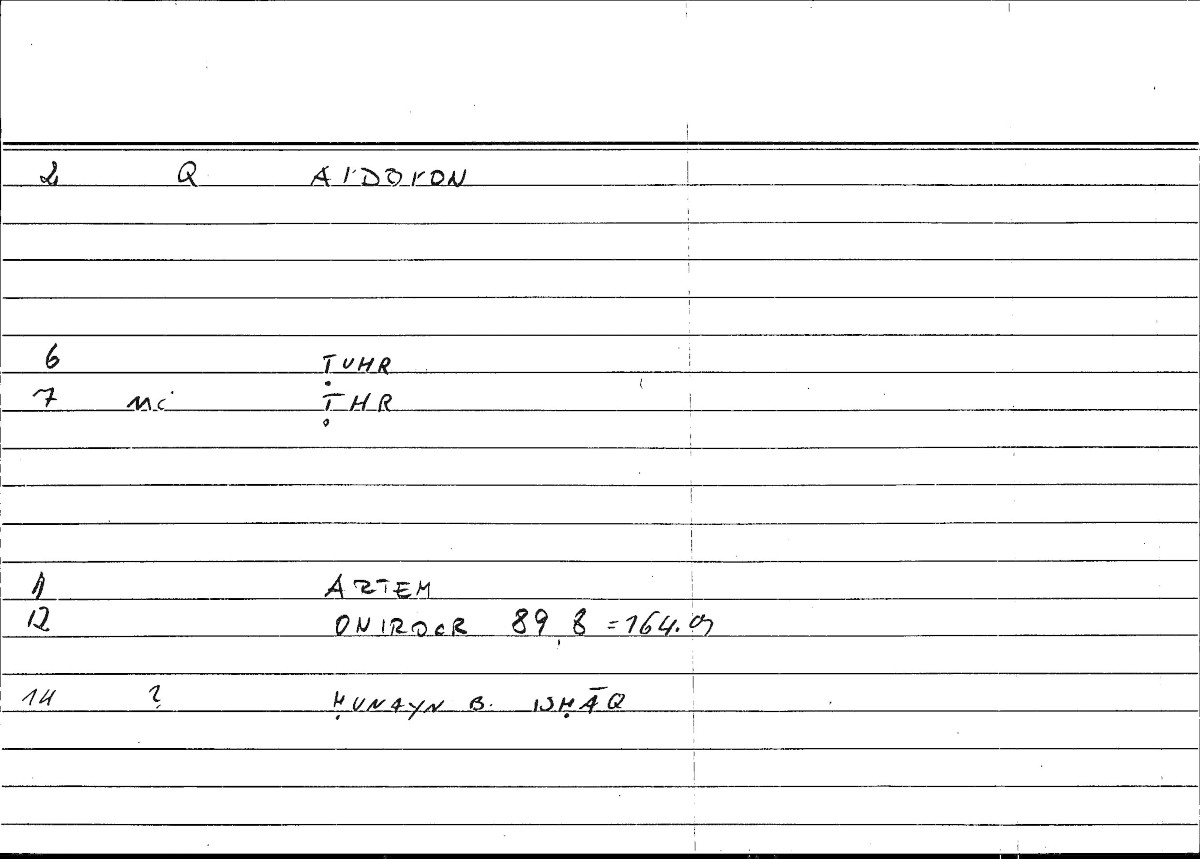 2 Q AIDOION
6 ṬUHR
7 mi ṬHR
1 ARTEM
12 ONIROCR 89,8 = 164.9
14 ? ḤUNAYN B. ISḤĀQ